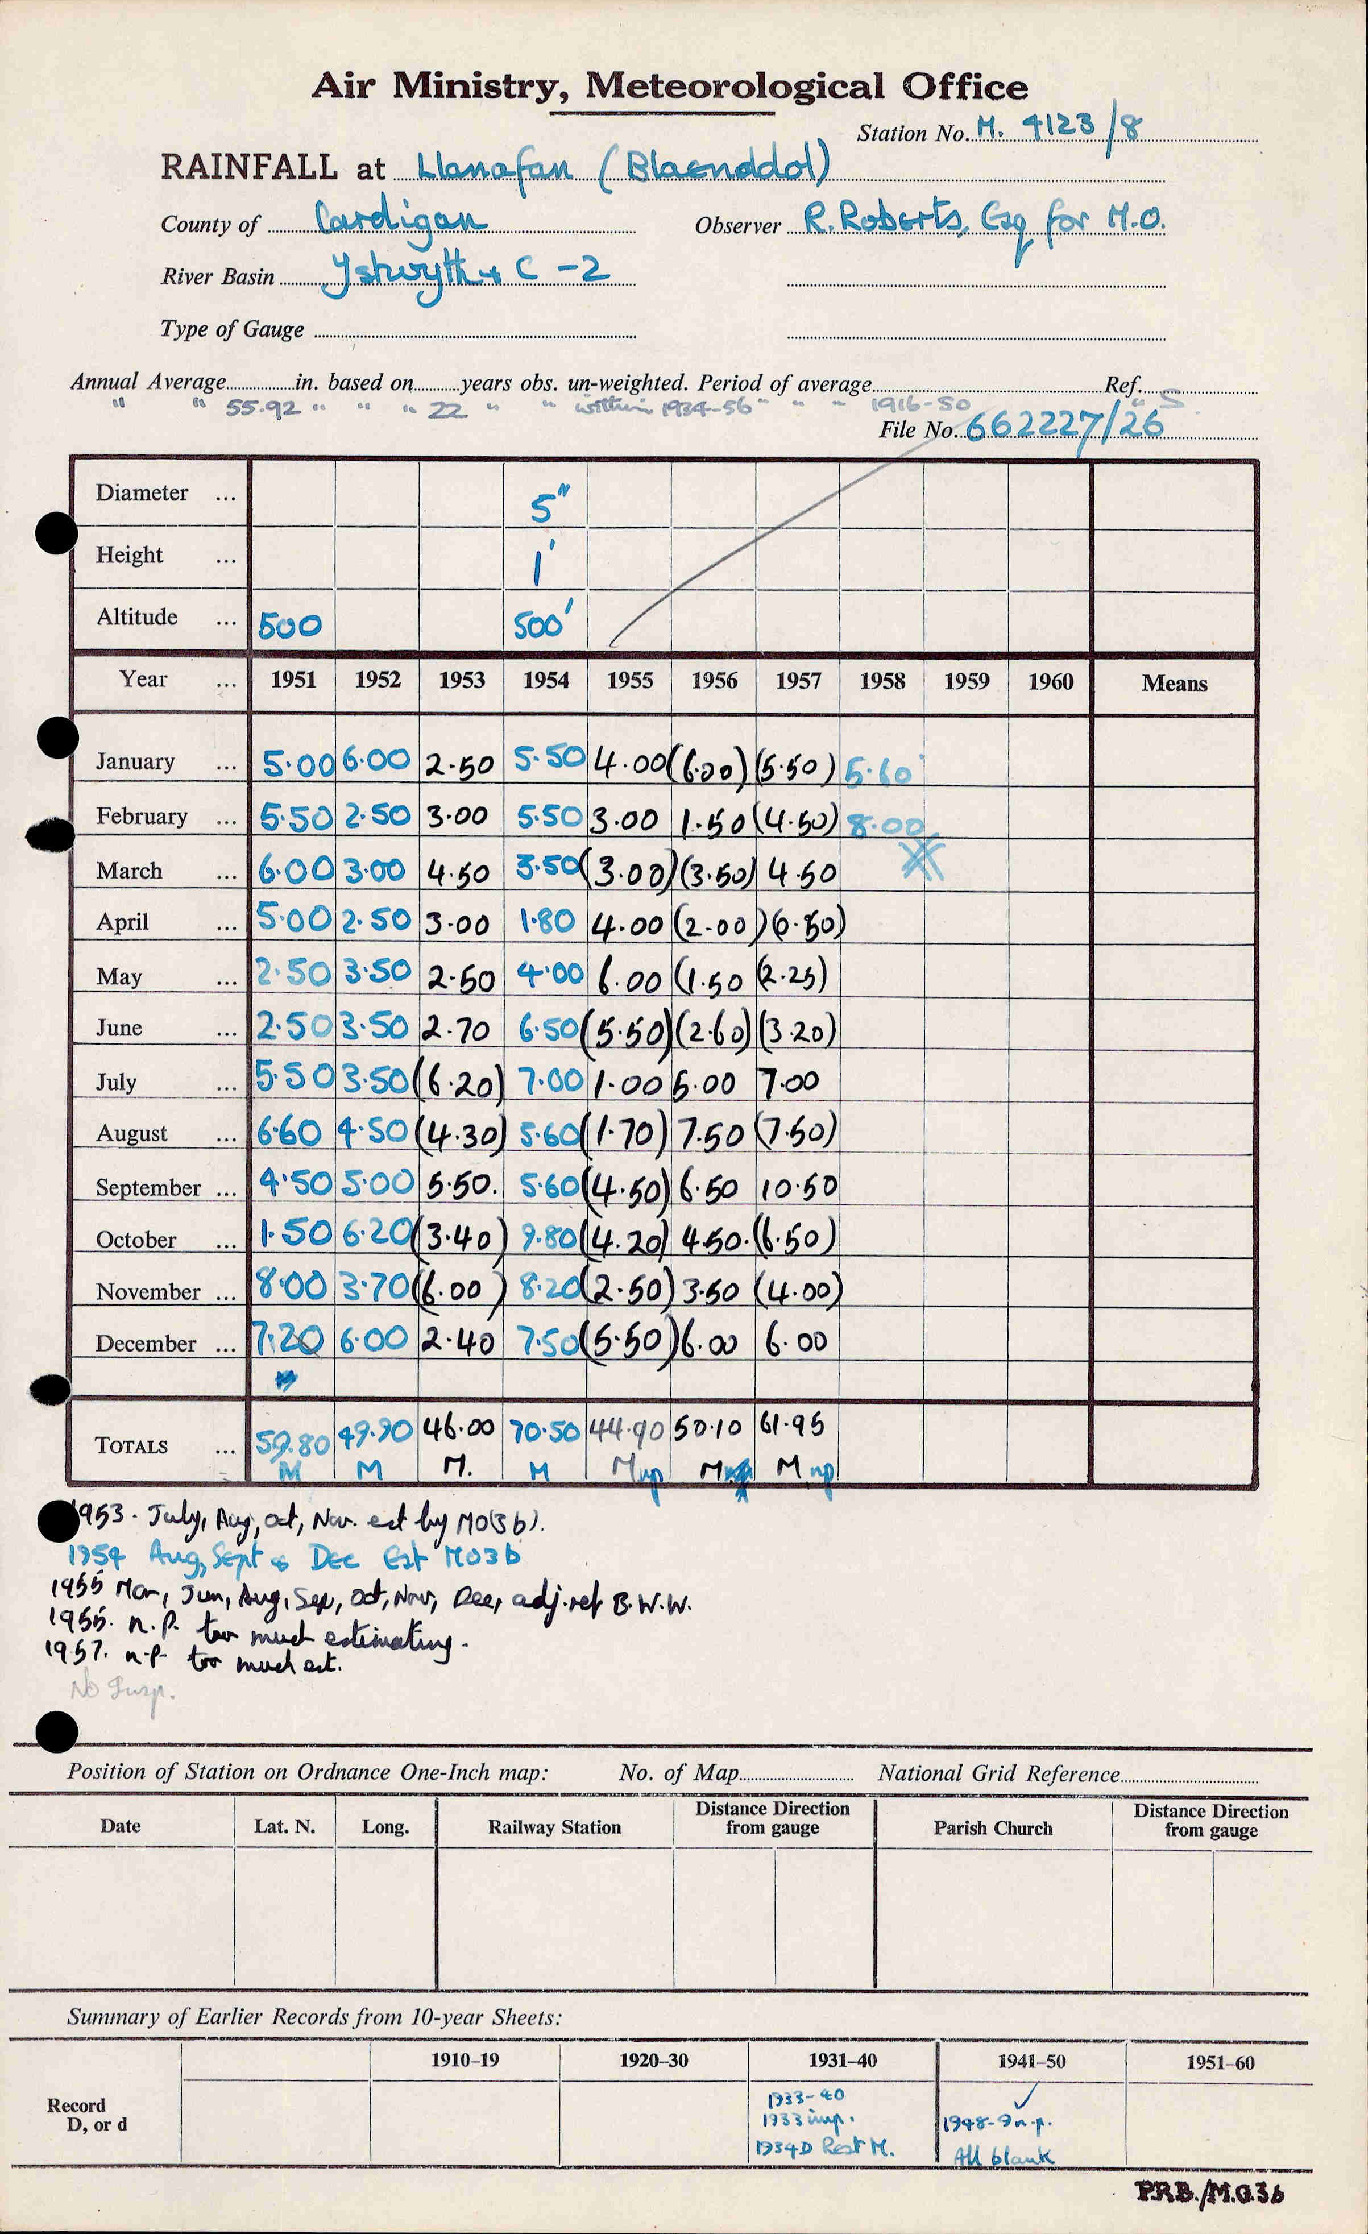 Air Ministry, Meteorological Office
Station No. M. 4123/8
RAINFALL at Llanafan (Blaenddol)
County of Cardigan Observer R. Roberts, Esq for M.O.
River Basin Ystwyth & C -2
Type of Gauge
Annual Average in. based on years obs. un-weighted. Period of average Ref.
" " 55.92 " " " 22 " " within 1934-56 " " " 1916-50 " S.
File No. 662227/26
Diameter ... 5"
Height ... 1'
Altitude ... 500 500'
Year ... 1951 1952 1953 1954 1955 1956 1957 1958 1959 1960 Means
January ... 5.00 6.00 2.50 5.50 4.00 (6.00) (5.50) 5.60
February ... 5.50 2.50 3.00 5.50 3.00 1.50 (4.50) 8.00
March ... 6.00 3.00 4.50 3.50 (3.00) (3.50) 4.50
April ... 5.00 2.50 3.00 1.80 4.00 (2.00) (0.50)
May ... 2.50 3.50 2.50 4.00 6.00 (1.50 (2.25)
June ... 2.50 3.50 2.70 6.50 (5.50) (2.60) (3.20)
July ... 5.50 3.50 (6.20) 7.00 1.00 5.00 7.00
August ... 6.60 4.50 (4.30) 5.60 (1.70) 7.50 (7.50)
September ... 4.50 5.00 5.50. 5.60 (4.50) 6.50 10.50
October ... 1.50 6.20 (3.40) 9.80 (4.20) 4.50. (6.50)
November ... 8.00 3.70 (6.00) 8.20 (2.50) 3.50 (4.00)
December ... 7.20 6.00 2.40 7.50 (5.50) 6.00 6.00
TOTALS ... 59.80 49.90 46.00 70.50 44.90 50.10 61.95
M M M. M M np M M np
1953 - July, Aug, Oct, Nov. est by MO(3b).
1954 Aug, Sept & Dec Est MO3b
1955 Mar, Jun, Aug, Sep, Oct, Nov, Dec, adj. ref B.W.W.
1955. n.p. too much estimating.
1957. n-p- too much est.
No Insp.
Position of Station on Ordnance One-Inch map: No. of Map National Grid Reference
Date Lat. N. Long. Railway Station Distance Direction from gauge Parish Church Distance Direction from gauge
Summary of Earlier Records from 10-year Sheets:
1910–19 1920–30 1931–40 1941–50 1951–60
Record
D, or d
1933-40
1933 imp.
1934D Rest M.
✓
1948-9 n.p.
All blank
P.R.B./M.O.3b